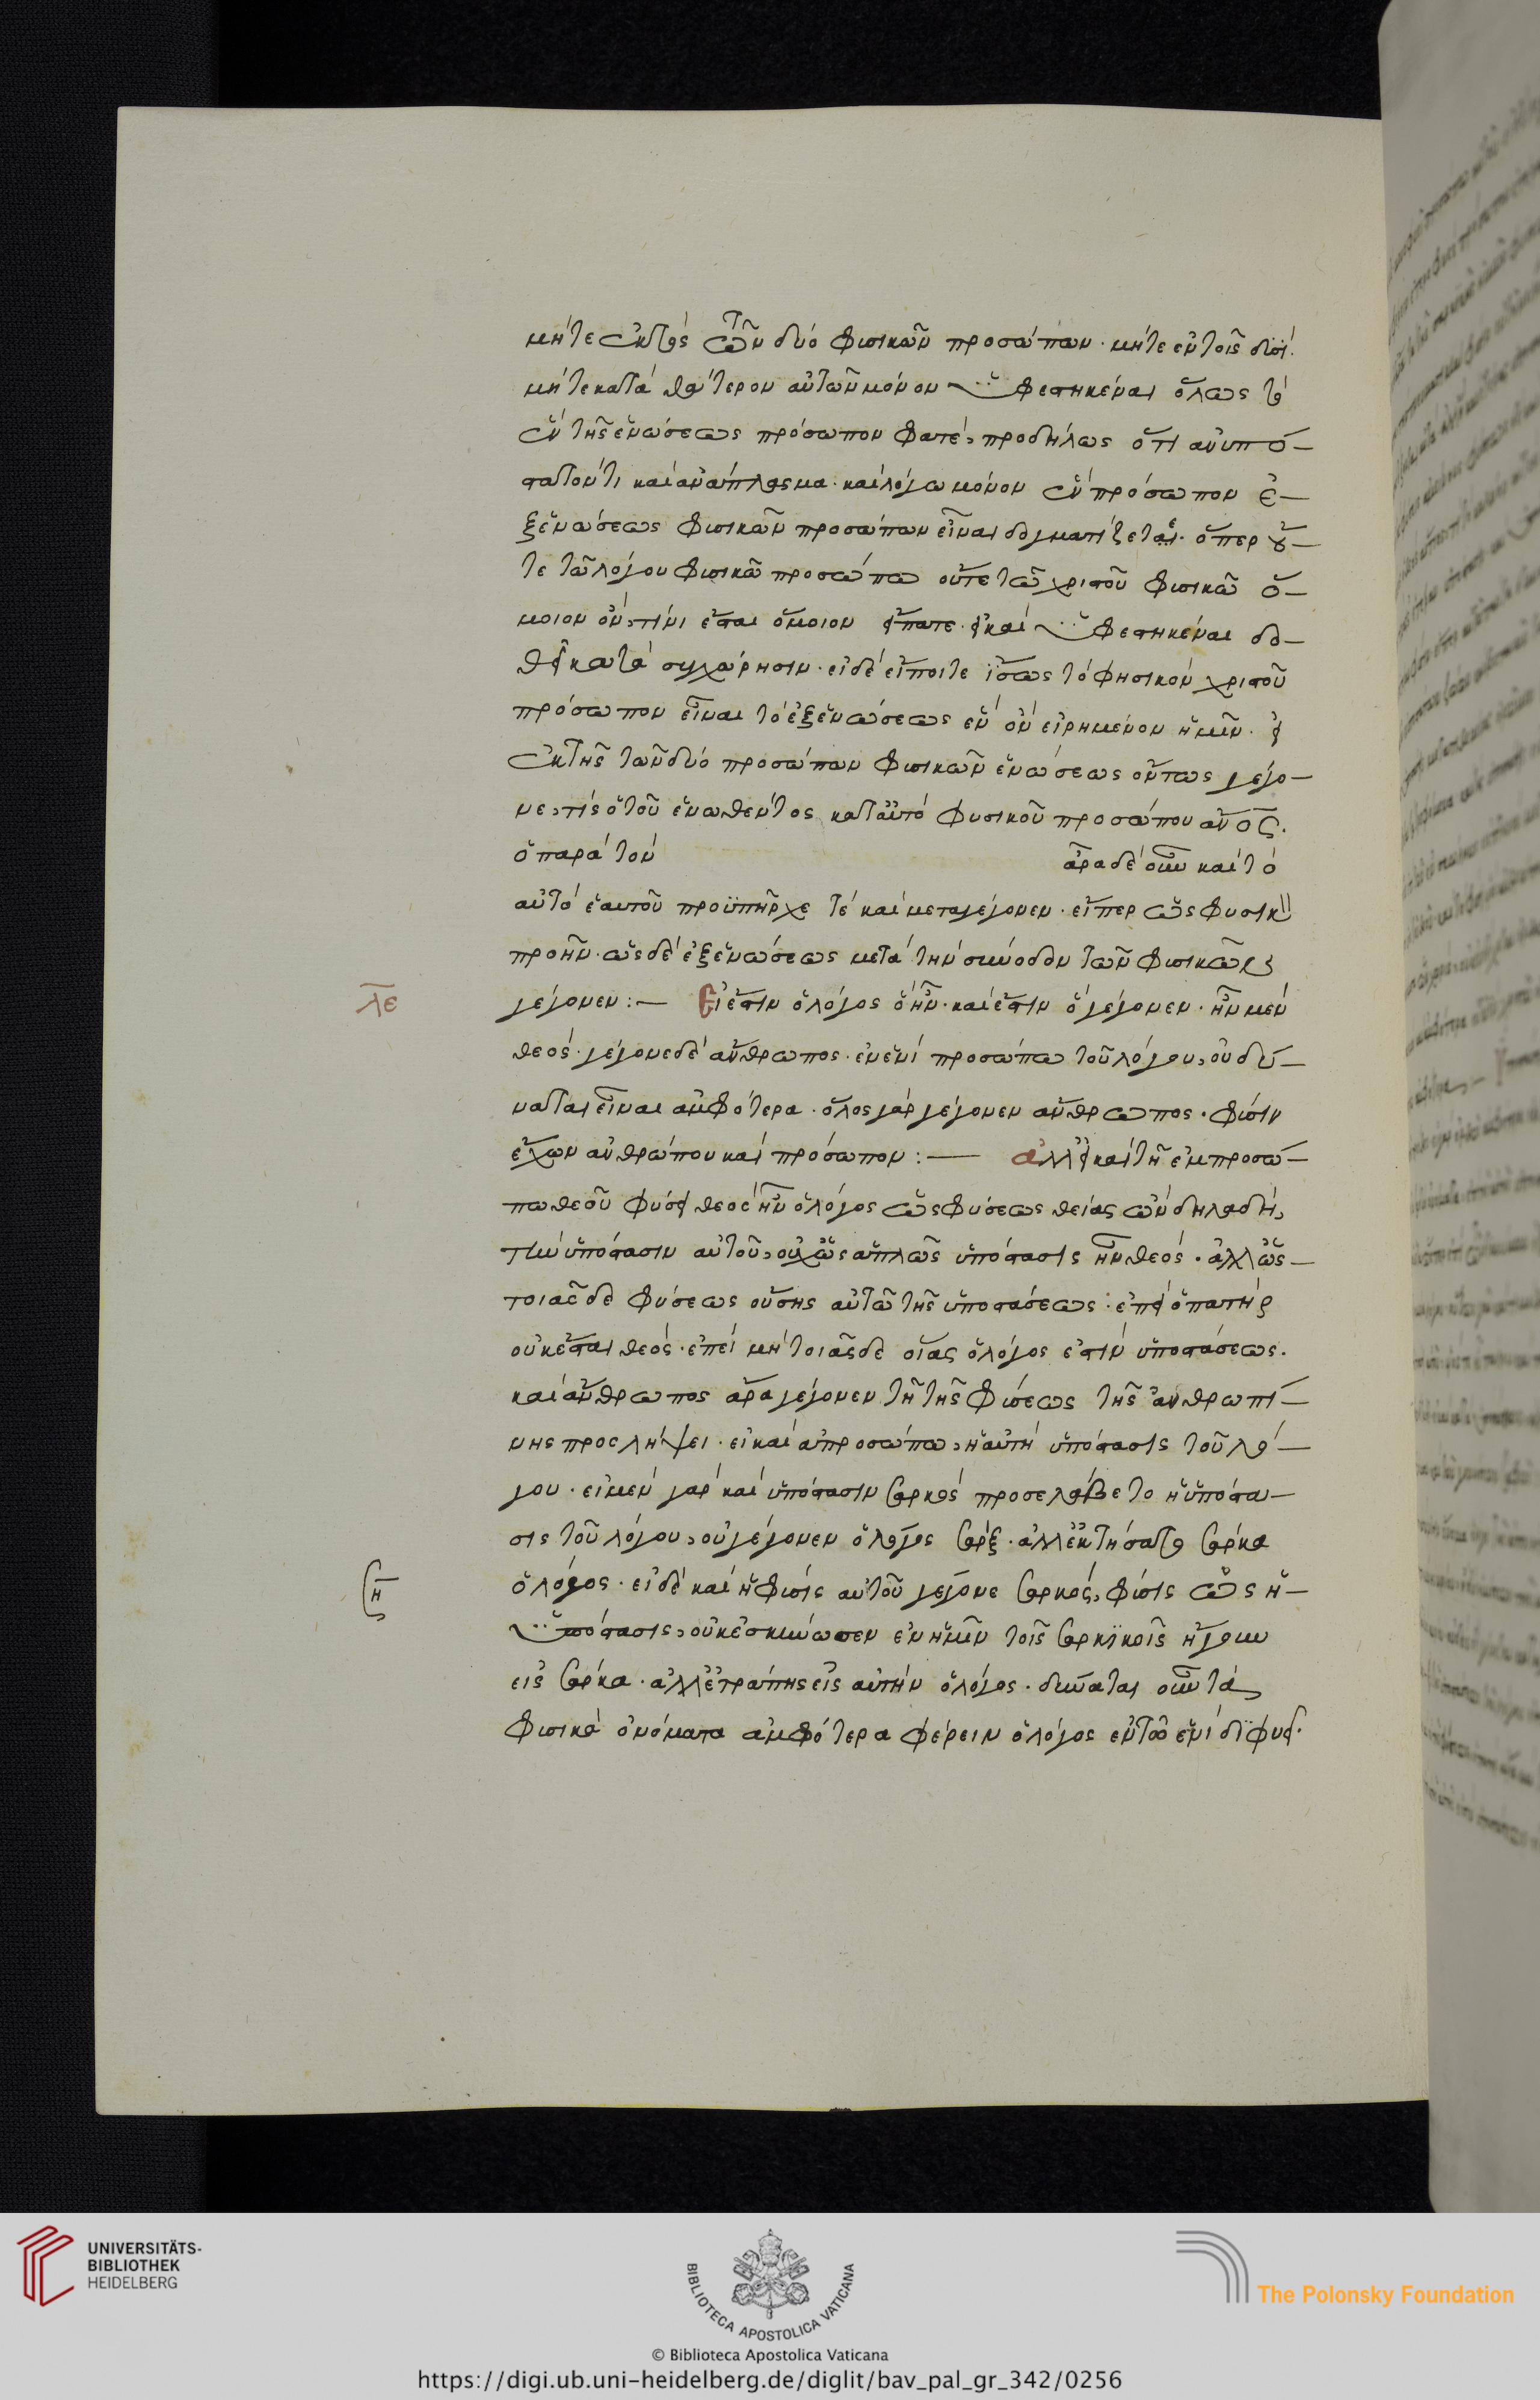 μήτε ἐκτὸς τῶν δύο φυσικῶν προσώπων· μήτε ἐν τοῖς δυσί·
μήτε κατὰ θάτερον αὐτῶν μόνον ὑφεστηκέναι ὅλως τὸ
ἐν τῆς ἑνώσεως πρόσωπον φατέ, προδήλως ὅτι ἀνυπό–
στατόν τι καὶ ἀνάπλασμα· καὶ λόγω μόνον ἓν πρόσωπον ἐ–
ξ ἑνώσεως φυσικῶν προσώπων εἶναι δογματίζεται· ὅπερ οὔ–
τε τῶ λόγου φυσικῶ προσώπω οὔτε τῶ χριστοῦ φυσικῶ ὅ–
μοιον ὂν, τίνι ἔσται ὅμοιον εἴπατε· εἰ καὶ ὑφεστηκέναι δο–
θῇ κατὰ συγχώρησιν· εἰ δὲ εἴποιτε ἴσως τὸ φησικὸν χριστοῦ
πρόσωπον εἶναι τὸ ἐξ ἑνώσεως ἓν ὂν εἰρημένον ἡμῖν· εἰ
ἐκ τῆς τῶν δύο προσώπων φυσικῶν ἑνώσεως ὄντως γέγο–
νε, τίς ὁ τοῦ ἑνωθέντος κατ αὐτὸ φυσικοῦ προσώπου ἀν ος·
ὁ παρὰ τὸν ἆρα δὲ οὖν καὶ τὸ
αὐτὸ ἑαυτοῦ προϋπῆρχέ τε καὶ μεταγέγονεν· εἴπερ ὡς φυσικὸν
προῆν· ὡς δὲ ἐξ ἑνώσεως μετὰ τὴν σύνοδον τῶν φυσικῶν
λε γέγονεν:— Εἰ ἔστιν ὁ λόγος ὃ ἦν· καὶ ἔστιν ὃ γέγονεν· ἦν μὲν
θεός· γέγονε δὲ ἄνθρωπος· ἐν ἑνὶ προσώπω τοῦ λόγου, οὐ δύ–
ναται εἶναι ἀμφότερα· ὅλος γὰρ γέγονεν ἄνθρωπος· φύσιν
ἔχων ἀνθρώπου καὶ πρόσωπον:— ἀλλ εἰ καὶ τῆ ἐμπροσώ–
πω θεοῦ φύσει θεὸς ἦν ὁ λόγος ὡς φύσεως θείας ὢν δηλαδὴ,
τὴν ὑπόστασιν αὐτοῦ, οὐχ ὡς ἁπλῶς ὑπόστασις ἦν θεός· ἀλλ ὡς–
τοιᾶσδε φύσεως οὔσης αὐτῶ τῆς ὑποστάσεως· ἐπεὶ ὁ πατὴρ
οὐκ ἔσται θεός· ἐπεὶ μὴ τοιᾶσδε οἵας ὁ λόγος ἐστὶν ὑποστάσεως·
καὶ ἄνθρωπος ἄρα γέγονεν τῆ τῆς φύσεως τῆς ἀνθρωπί–
νης προσλήψει· εἰ καὶ ἀπροσώπω, ἡ αὐτὴ ὑπόστασις τοῦ λό–
γου· εἰ μὲν γὰρ καὶ ὑπόστασιν σαρκὸς προσελάβετο ἡ ὑπόστα–
σις τοῦ λόγου, οὐ γέγονεν ὁ λόγος σὰρξ· ἀλλ ἐκτήσατο σάρκα
ση ὁ λόγος· εἰ δὲ καὶ ἡ φύσις αὐτοῦ γέγονε σαρκὸς, φύσις ὡς ἡ–
ὑπόστασις, οὐκ ἐσκήνωσεν ἐν ἡμῖν τοῖς σαρκϊκοῖς ἤγουν
εἰς σάρκα· ἀλλ ἐτράπης εἰς αὐτὴν ὁ λόγος· δύναται οὖν τὰ
φυσικὰ ὀνόματα ἀμφότερα φέρειν ὁ λόγος ἐν τῶ ἑνὶ διφυεῖ·
UNIVERSITÄTS-
BIBLIOTHEK
HEIDELBERG
BIBLIOTECA APOSTOLICA VATICANA
The Polonsky Foundation
© Biblioteca Apostolica Vaticana
https://digi.ub.uni-heidelberg.de/diglit/bav_pal_gr_342/0256